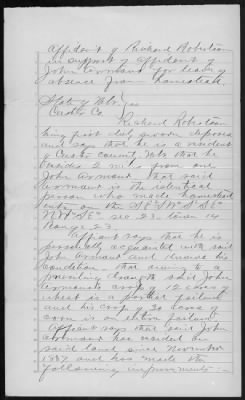 Affidavit of Richard Robertson
in support of affidavit of
John Cormany for leave of
absence from homestead
State of Neb
Custer Co
Richard Robertson
being first duly sworn deposes
and says that he is a resident
of Custer County Neb that he
resides 2 mile from one
John Cormany that said
Cormany is the identical
person who made homestead
entry on the
NW SE sec 23 town 14
Range 23
Affiant says that he is
personally acquainted with said
John Cormany and knows his
condition that owing to a
prevailing drouth said John
Cormany's crop of 12 acres of
wheat is a partial failure
and his crop of 20 acres of
corn is an entire failure
Affiant says that said John
Cormany has resided on
said land since November
1887 and has made the
following improvements:-